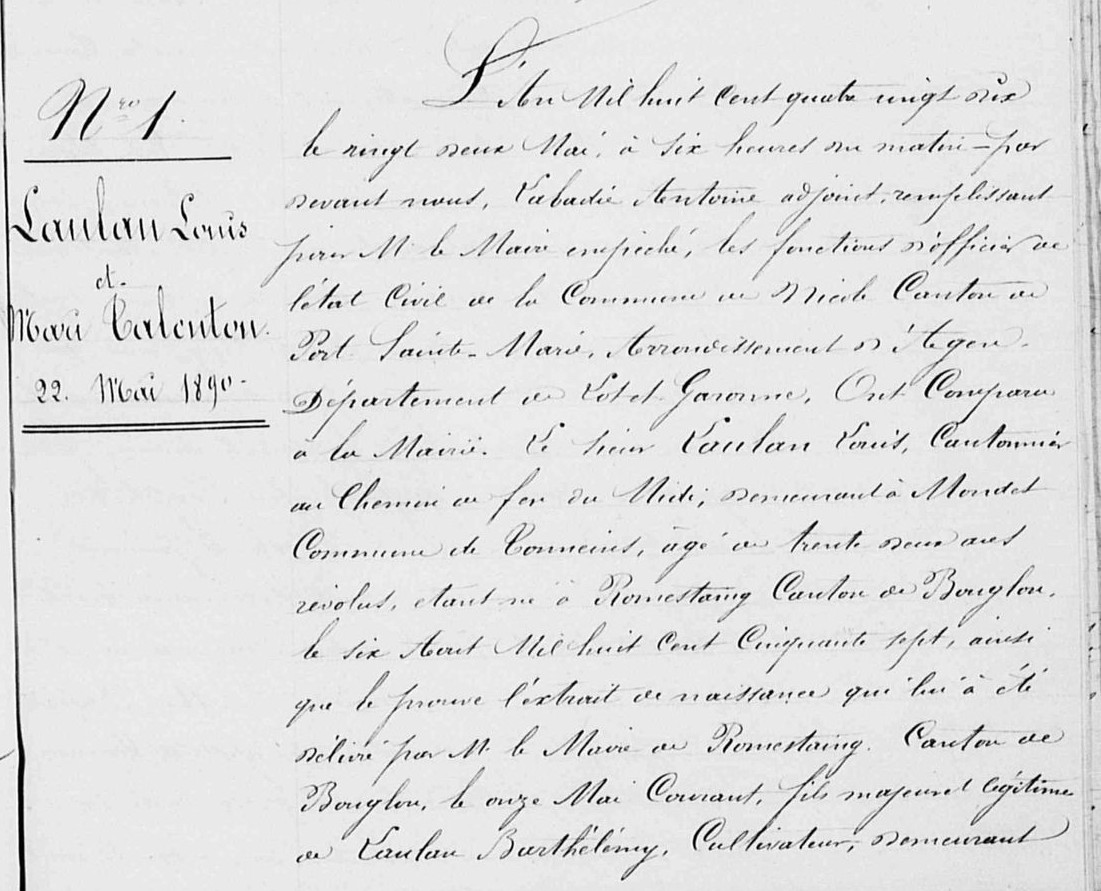 Nro 1.
Laulan Louis
et
Marie Talenton.
22. Mai 1890
L'An Mil huit cent quatre vingt dix
le vingt deux Mai, à six heures du matin par
devant nous, Labadie Antoine adjoint, remplissant
pour Mr le Maire empêché, les fonctions d'officier de
l'état Civil de la Commune de Nicole Canton de
Port Sainte-Marie, Arrondissement d'Agen.
Département de Lot et Garonne, Ont Comparu
à la Mairie. Le Sieur Laulan Louis, Cantonnier
au Chemin de fer du Midi, demeurant à Mondet
Commune de Tonneins, âgé de trente deux ans
révolus, etant né à Romestaing Canton de Bouglon,
le six Aout Mil huit cent Cinquante sept, ainsi
que le prouve l'éxtrait de naissance qui lui à été
délivré par Mr le Maire de Romestaing. Canton de
Bouglon, le onze Mai Courant, fils majeur et légitime
de Laulan Barthélémy, Cultivateur, demeurant